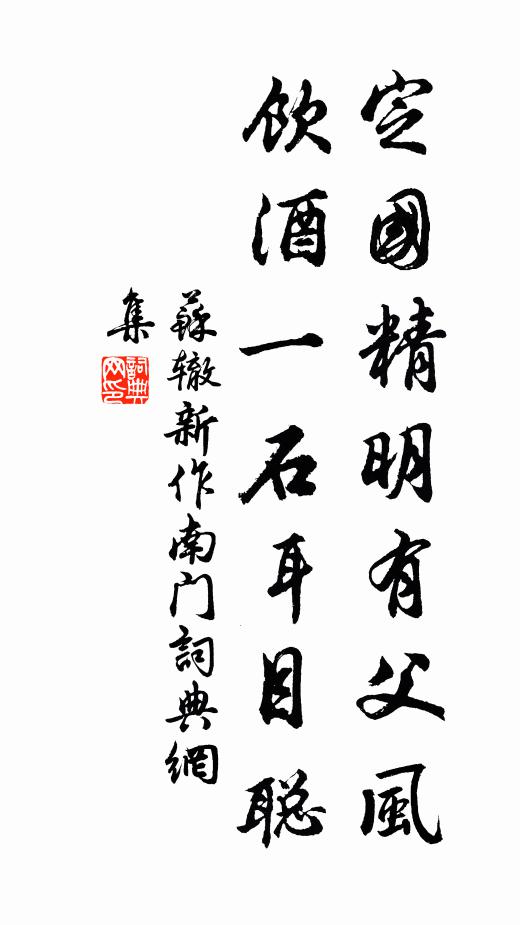 定國精明有父風
飲酒一石耳目聪
蘇辙新作南门詞典網
集
詞典網印